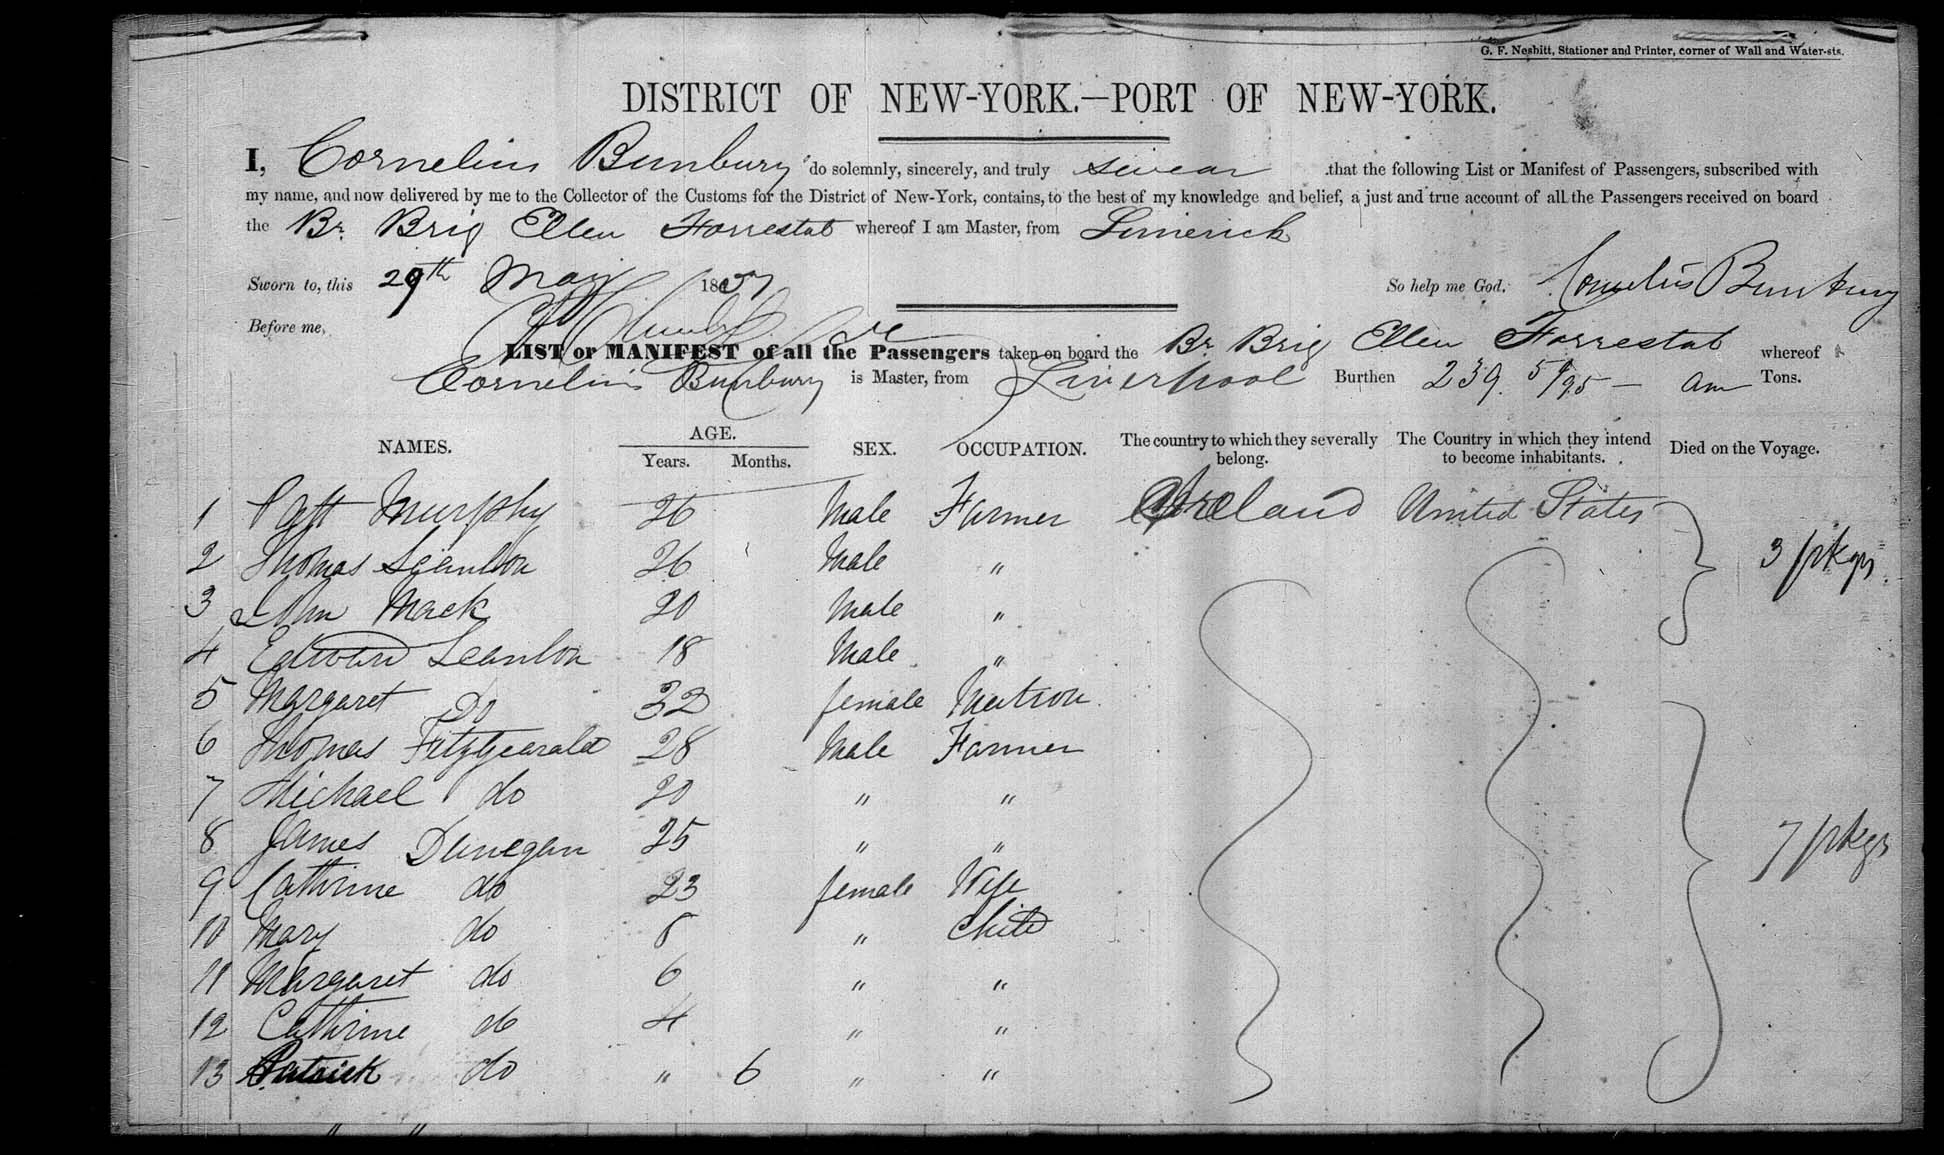 G. F. Nesbitt, Stationer and Printer, corner of Wall and Water-sts.
DISTRICT OF NEW-YORK.—PORT OF NEW-YORK.
I, Cornelius Bunbury do solemnly, sincerely, and truly swear that the following List or Manifest of Passengers, subscribed with
my name, and now delivered by me to the Collector of the Customs for the District of New-York, contains, to the best of my knowledge and belief, a just and true account of all the Passengers received on board
the Br. Brig Ellen Forrestal whereof I am Master, from Limerick
Sworn to, this 29th May 18 So help me God. Cornelius Bunbury
Before me,
LIST or MANIFEST of all the Passengers taken on board the Br. Brig Ellen Forrestal whereof
Cornelius Bunbury is Master, from Liverpool Burthen 239 Tons.
NAMES. AGE. SEX. OCCUPATION. The country to which they severally belong. The Country in which they intend to become inhabitants. Died on the Voyage.
Years. Months.
1 Patt Murphy 26 Male Farmer Ireland United States
2 Thomas Scanlon 26 Male "
3 John Mack 20 Male " 3 pkgs
4 Edward Scanlon 18 Male "
5 Margaret Do 32 female Matron
6 Thomas Fitzgearald 28 Male Farmer
7 Michael do 20 " "
8 James Dunegan 25 " " 7 pkgs
9 Cathrine do 23 female Wife
10 Mary do 8 " Child
11 Margaret do 6 " "
12 Cathrine do 4 " "
13 Patrick do " 6 " "